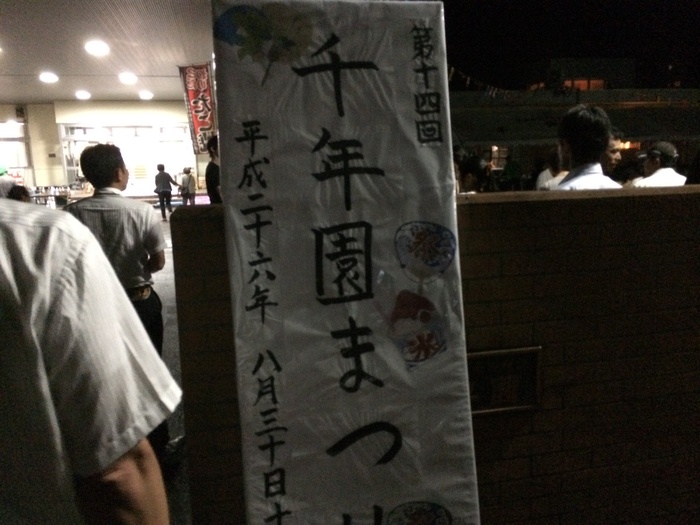 第十四回
千年園まつり
平成二十六年 八月三十日十
祭
氷